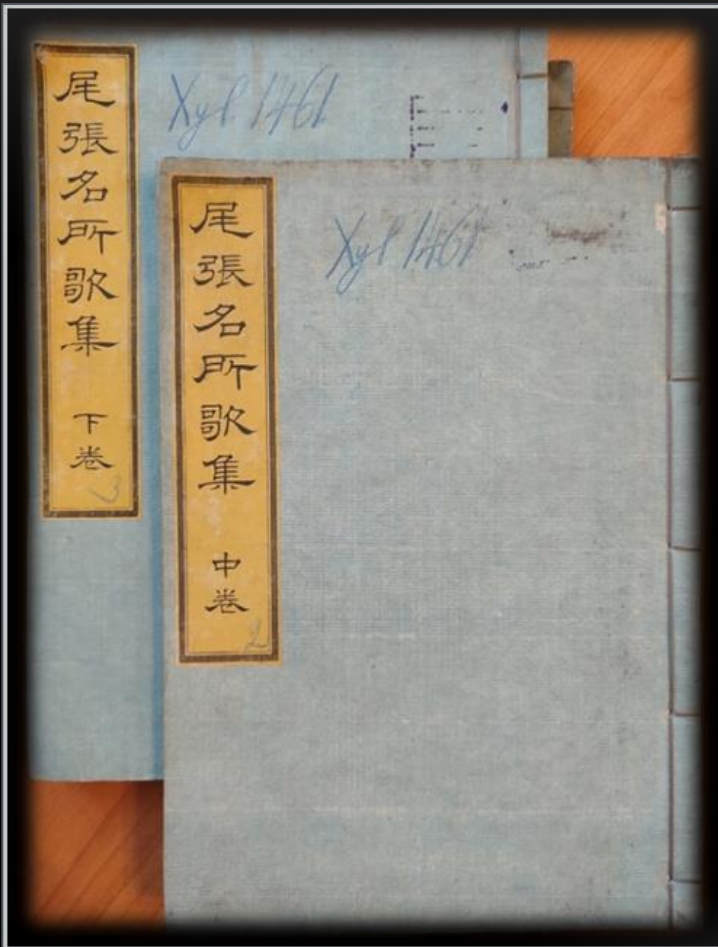 尾張名所歌集
下巻
3
Xyl. 1461
尾張名所歌集
中巻
2
Xyl 1461